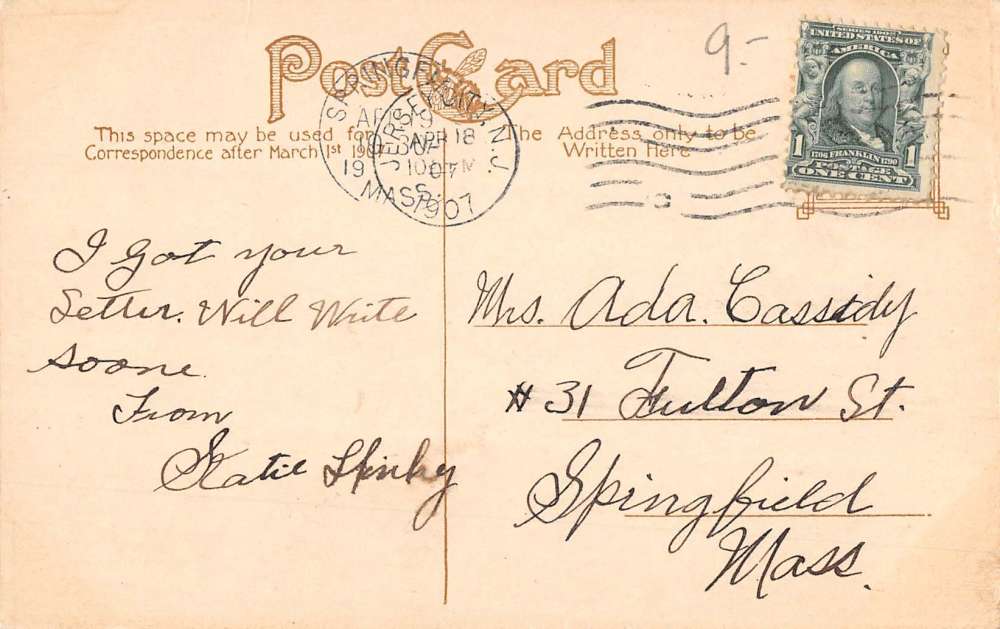 Post Card
9-
SERIES 1902
UNITED STATES OF
AMERICA
1 1706 FRANKLIN 1790 1
POSTAGE
ONE CENT
SPRINGFIELD
MASS.
JERSEY CITY, N.J.
APR 18
1907
This space may be used for
Correspondence after March 1st 1907
The Address only to be
Written Here
I Got your
Letter. Will Write
soone.
From
Katie
Mrs. Ada. Cassidy
# 31 Fulton St.
Springfield
Mass.